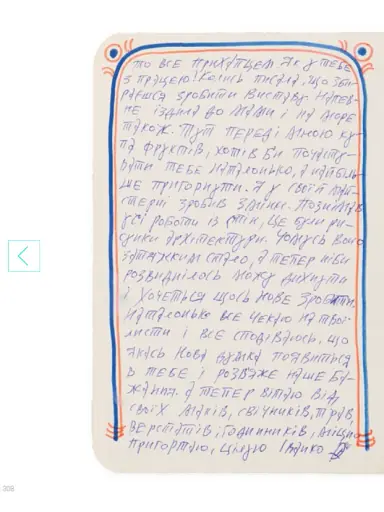 то все прихапцем. Як у тебе
з працею? Колись писала, що зби-
раєшся зробити виставу. Напев-
не їздила до мами і на море
також. Тут переді мною ку-
па фруктів, хотів би почасту-
вати тебе Наталонько, а найбіль-
ше пригорнути. А у своїй май-
стерні зробив зміни. Познімав
усі роботи із стін, це були ри-
сунки архітектури. Чомусь воно
затяжким стало, а тепер ніби
розвиднілось можу дихнути
і хочеться щось нове зробити.
Наталонько все чекаю на твої
листи і все сподіваюсь, що
якась нова думка появиться
в тебе і розваже наше ба-
жання. А тепер вітаю від
своїх маків, свічників, трав,
верстатів, годинників, міцно
пригортаю, цілую Івалко
308